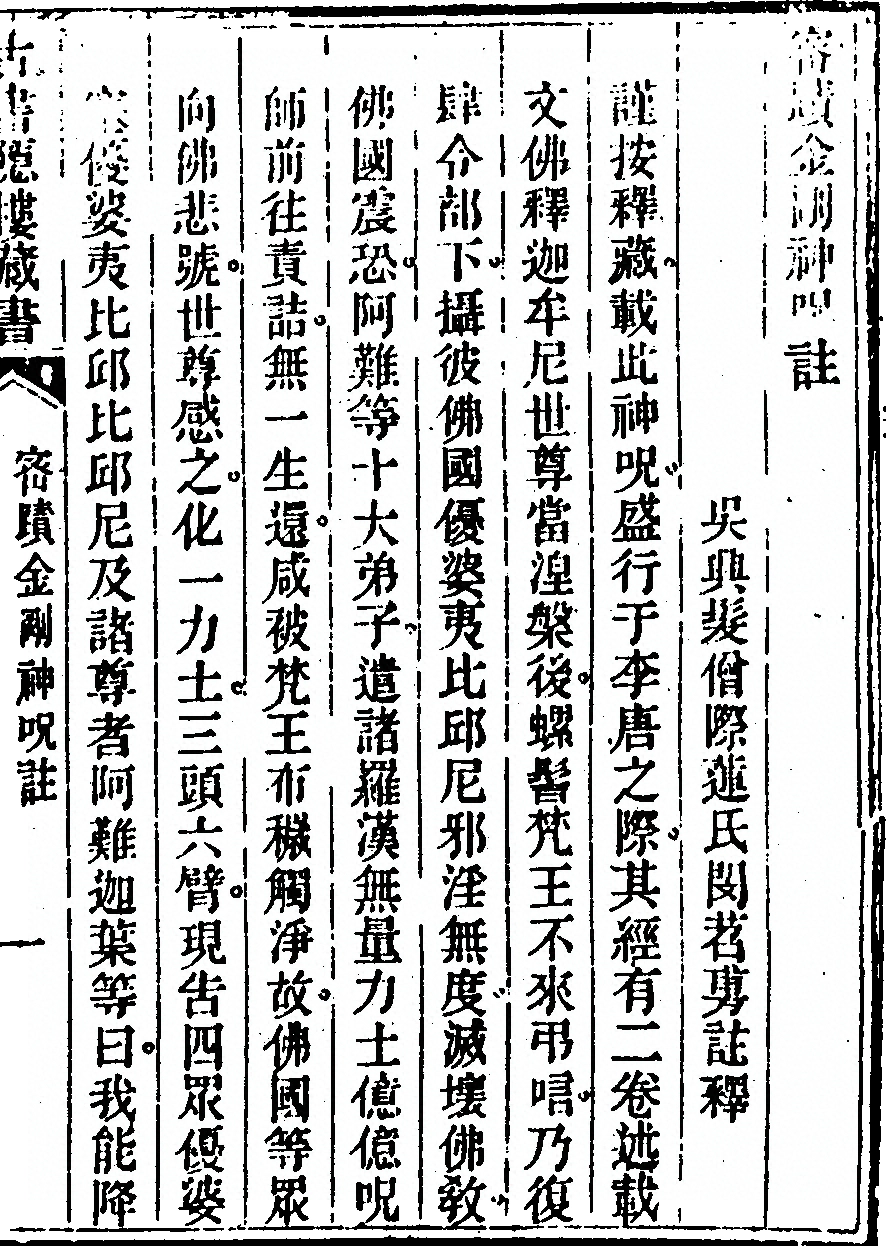 密蹟金剛神呪註
吳興髮僧際蓮氏閔苕旉註釋
謹按釋藏載此神呪盛行于李唐之際其經有二卷述載
文佛釋迦牟尼世尊當湼槃後螺髻梵王不來弔唁乃復
肆令部下攝彼佛國優婆夷比邱尼邪淫無度滅壞佛敎
佛國震恐阿難等十大弟子遣諸羅漢無量力士億億呪
師前往責詰無一生還咸被梵王布穢觸淨故佛國等眾
向佛悲號世尊感之化一力士三頭六臂現告四眾優婆
塞優婆夷比邱比邱尼及諸尊者阿難迦葉等曰我能降
古書隱樓藏書
密蹟金剛神呪註
一